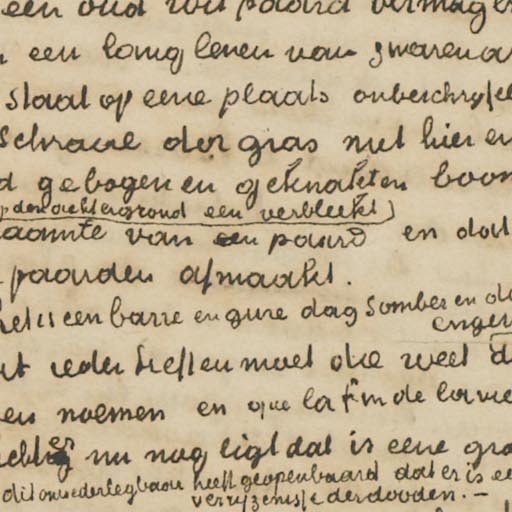 een oud wit paard vermager
een lang leven van zwaren a
staat op eene plaats onbeschrijfel
schraal dor gras met hier en
d gebogen en geknakten boom
op den achtergrond een verbleekt
aamte van een paard en dat
paarden afmaakt.
het is een barre en gure dag somber en do
enger
ut ieder treffen moet die weet d
en noemen en que la fin de la vie
echter nu nog ligt dat is eene gro
dit onwederlegbaar heeft geopenbaard dat er is ee
verryzenisse der dooden. —